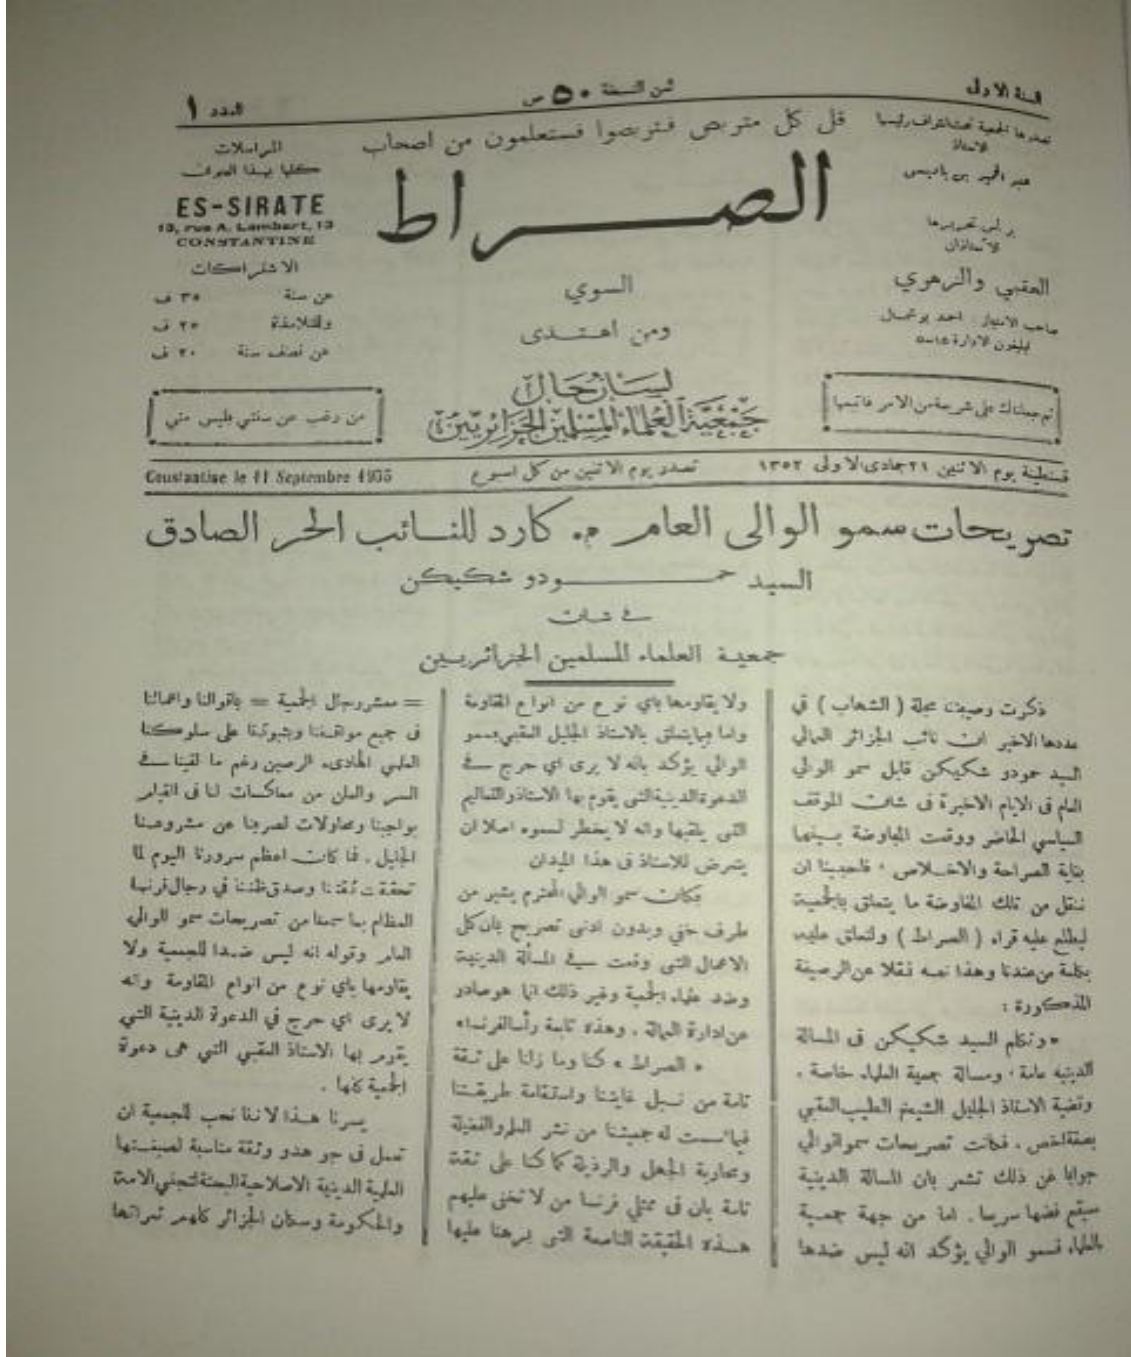 السنة الاولى
ثمن النسخة ٥٠ ص
العدد ١
تصدرها الجمعية تحت اشراف رئيسها
الاستاذ
عبد الحميد بن باديس
يرأس تحريرها
الاستاذان
العقبي والزهري
صاحب الامتياز : احمد بوشمال
تيليفون الادارة ١٥-٥
قل كل متربص فتربصوا فستعلمون من اصحاب
الصراط
السوي
ومن اهتدى
لسان حال
جمعية العلماء المسلمين الجزائريين
المراسلات
كلها بهذا العنوان
ES-SIRATE
13, rue A. Lambert, 13
CONSTANTINE
الاشتراكات
عن سنة ٣٥ ف
وللتلامذة ٢٥ ف
عن نصف سنة ٢٠ ف
ثم جعلناك على شريعة من الامر فاتبعها
من رغب عن سنتي فليس مني
قسنطينة يوم الاثنين ٢١ جمادى الاولى ١٣٥٢
تصدر يوم الاثنين من كل اسبوع
Constantine le 11 Septembre 1933
تصريحات سمو الوالى العام م. كارد للنائب الحر الصادق
السيد حمودو شكيكن
في شان
جمعية العلماء المسلمين الجزائريين
ذكرت رصيفتنا مجلة ( الشهاب ) في
عددها الاخير ان نائب الجزائر المالي
السيد حمودو شكيكن قابل سمو الوالي
العام فى الايام الاخيرة فى شان الموقف
السياسي الحاضر ووقعت المفاوضة بينهما
بغاية الصراحة والاخلاص ، فاحببنا ان
ننقل من تلك المفاوضة ما يتعلق بالجمعية
ليطلع عليه قراء ( الصراط ) ولنعلق عليه
بكلمة من عندنا وهذا نصه نقلا عن الرصيفة
المذكورة :
« وتكلم السيد شكيكن فى المسالة
الدينيه عامة ، ومسالة جمعية العلماء خاصة ،
وقضية الاستاذ الجليل الشيخ الطيب العقبي
بصفة اخص ، فكانت تصريحات سمو الوالي
جوابا عن ذلك تشعر بان المسالة الدينية
سيقع فضها سريعا . اما من جهة جمعية
العلماء فسمو الوالي يؤكد انه ليس ضدها
ولا يقاومها باي نوع من انواع المقاومة
واما فيما يتعلق بالاستاذ الجليل العقبي فسمو
الوالي يؤكد بانه لا يرى اي حرج في
الدعوة الدينية التى يقوم بها الاستاذ والتعاليم
التى يلقيها وانه لا يخطر لسموه اصلا ان
يتعرض للاستاذ فى هذا الميدان
فكان سمو الوالي المحترم يشير من
طرف خفي وبدون ادنى تصريح بان كل
الاعمال التى وقعت في المسألة الدينية
وضد علماء الجمعية وغير ذلك انما هو صادر
عن ادارة العمالة ، وهذه تابعة رأسا لفرنسا »
« الصراط » كنا وما زلنا على ثقة
تامة من نبل غايتنا واستقامة طريقتنا
فيما اسست له جمعيتنا من نشر العلم والفضيلة
ومحاربة الجهل والرذيلة كما كنا على ثقة
تامة بان فى ممثلي فرنسا من لا تخفى عليهم
هذه الحقيقة الناصعة التى برهنا عليها
= معشر رجال الجمعية = باقوالنا واعمالنا
فى جميع مواقفنا وبثبوتنا على سلوكنا
العلمي الهادىء الرصين رغم ما لقينا في
السر والعلن من معاكسات لنا فى القيام
بواجبنا ومحاولات لصرفنا عن مشروعنا
الجليل . فما كان اعظم سرورنا اليوم لما
تحققت ثقتنا وصدق ظننا في رجال فرنسا
العظام بما سمعنا من تصريحات سمو الوالي
العام وقوله انه ليس ضدا للجمعية ولا
يقاومها باي نوع من انواع المقاومة وانه
لا يرى اي حرج في الدعوة الدينية التي
يقوم بها الاستاذ العقبي التي هى دعوة
الجمعية كلها .
يسرنا هذا لاننا نحب للجمعية ان
تعمل فى جو هدو وثقة مناسبة لصبغتها
العلمية الدينية الاصلاحية البحتة لتجني الامة
والحكومة وسكان الجزائر كلهم ثمراتها